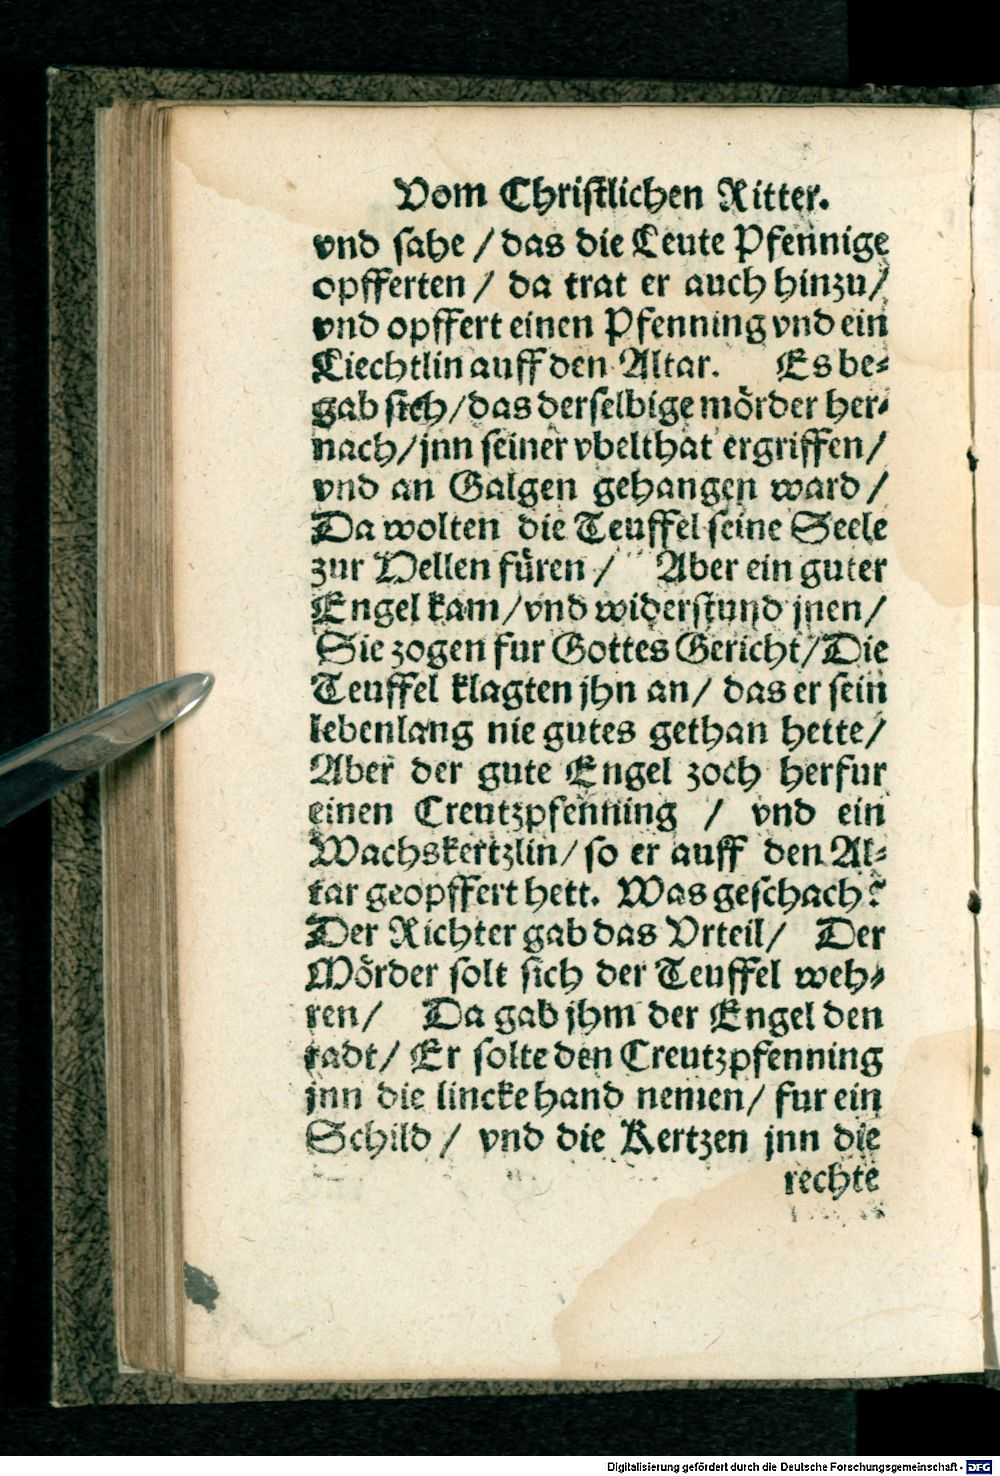 Vom Christlichen Ritter.
vnd sahe / das die Leute Pfennige
opfferten / da trat er auch hinzu /
vnd opffert einen Pfenning vnd ein
Liechtlin auff den Altar. Es be-
gab sich / das derselbige mörder her-
nach / jnn seiner vbelthat ergriffen /
vnd an Galgen gehangen ward /
Da wolten die Teuffel seine Seele
zur Hellen füren / Aber ein guter
Engel kam / vnd widerstund jnen /
Sie zogen fur Gottes Gericht / Die
Teuffel klagten jhn an / das er sein
lebenlang nie gutes gethan hette /
Aber der gute Engel zoch herfur
einen Creutzpfenning / vnd ein
Wachskertzlin / so er auff den Al-
tar geopffert hett. Was geschach?
Der Richter gab das Vrteil / Der
Mörder solt sich der Teuffel weh-
ren / Da gab jhm der Engel den
radt / Er solte den Creutzpfenning
jnn die lincke hand nemen / fur ein
Schild / vnd die Kertzen jnn die
rechte
Digitalisierung gefördert durch die Deutsche Forschungsgemeinschaft - DFG